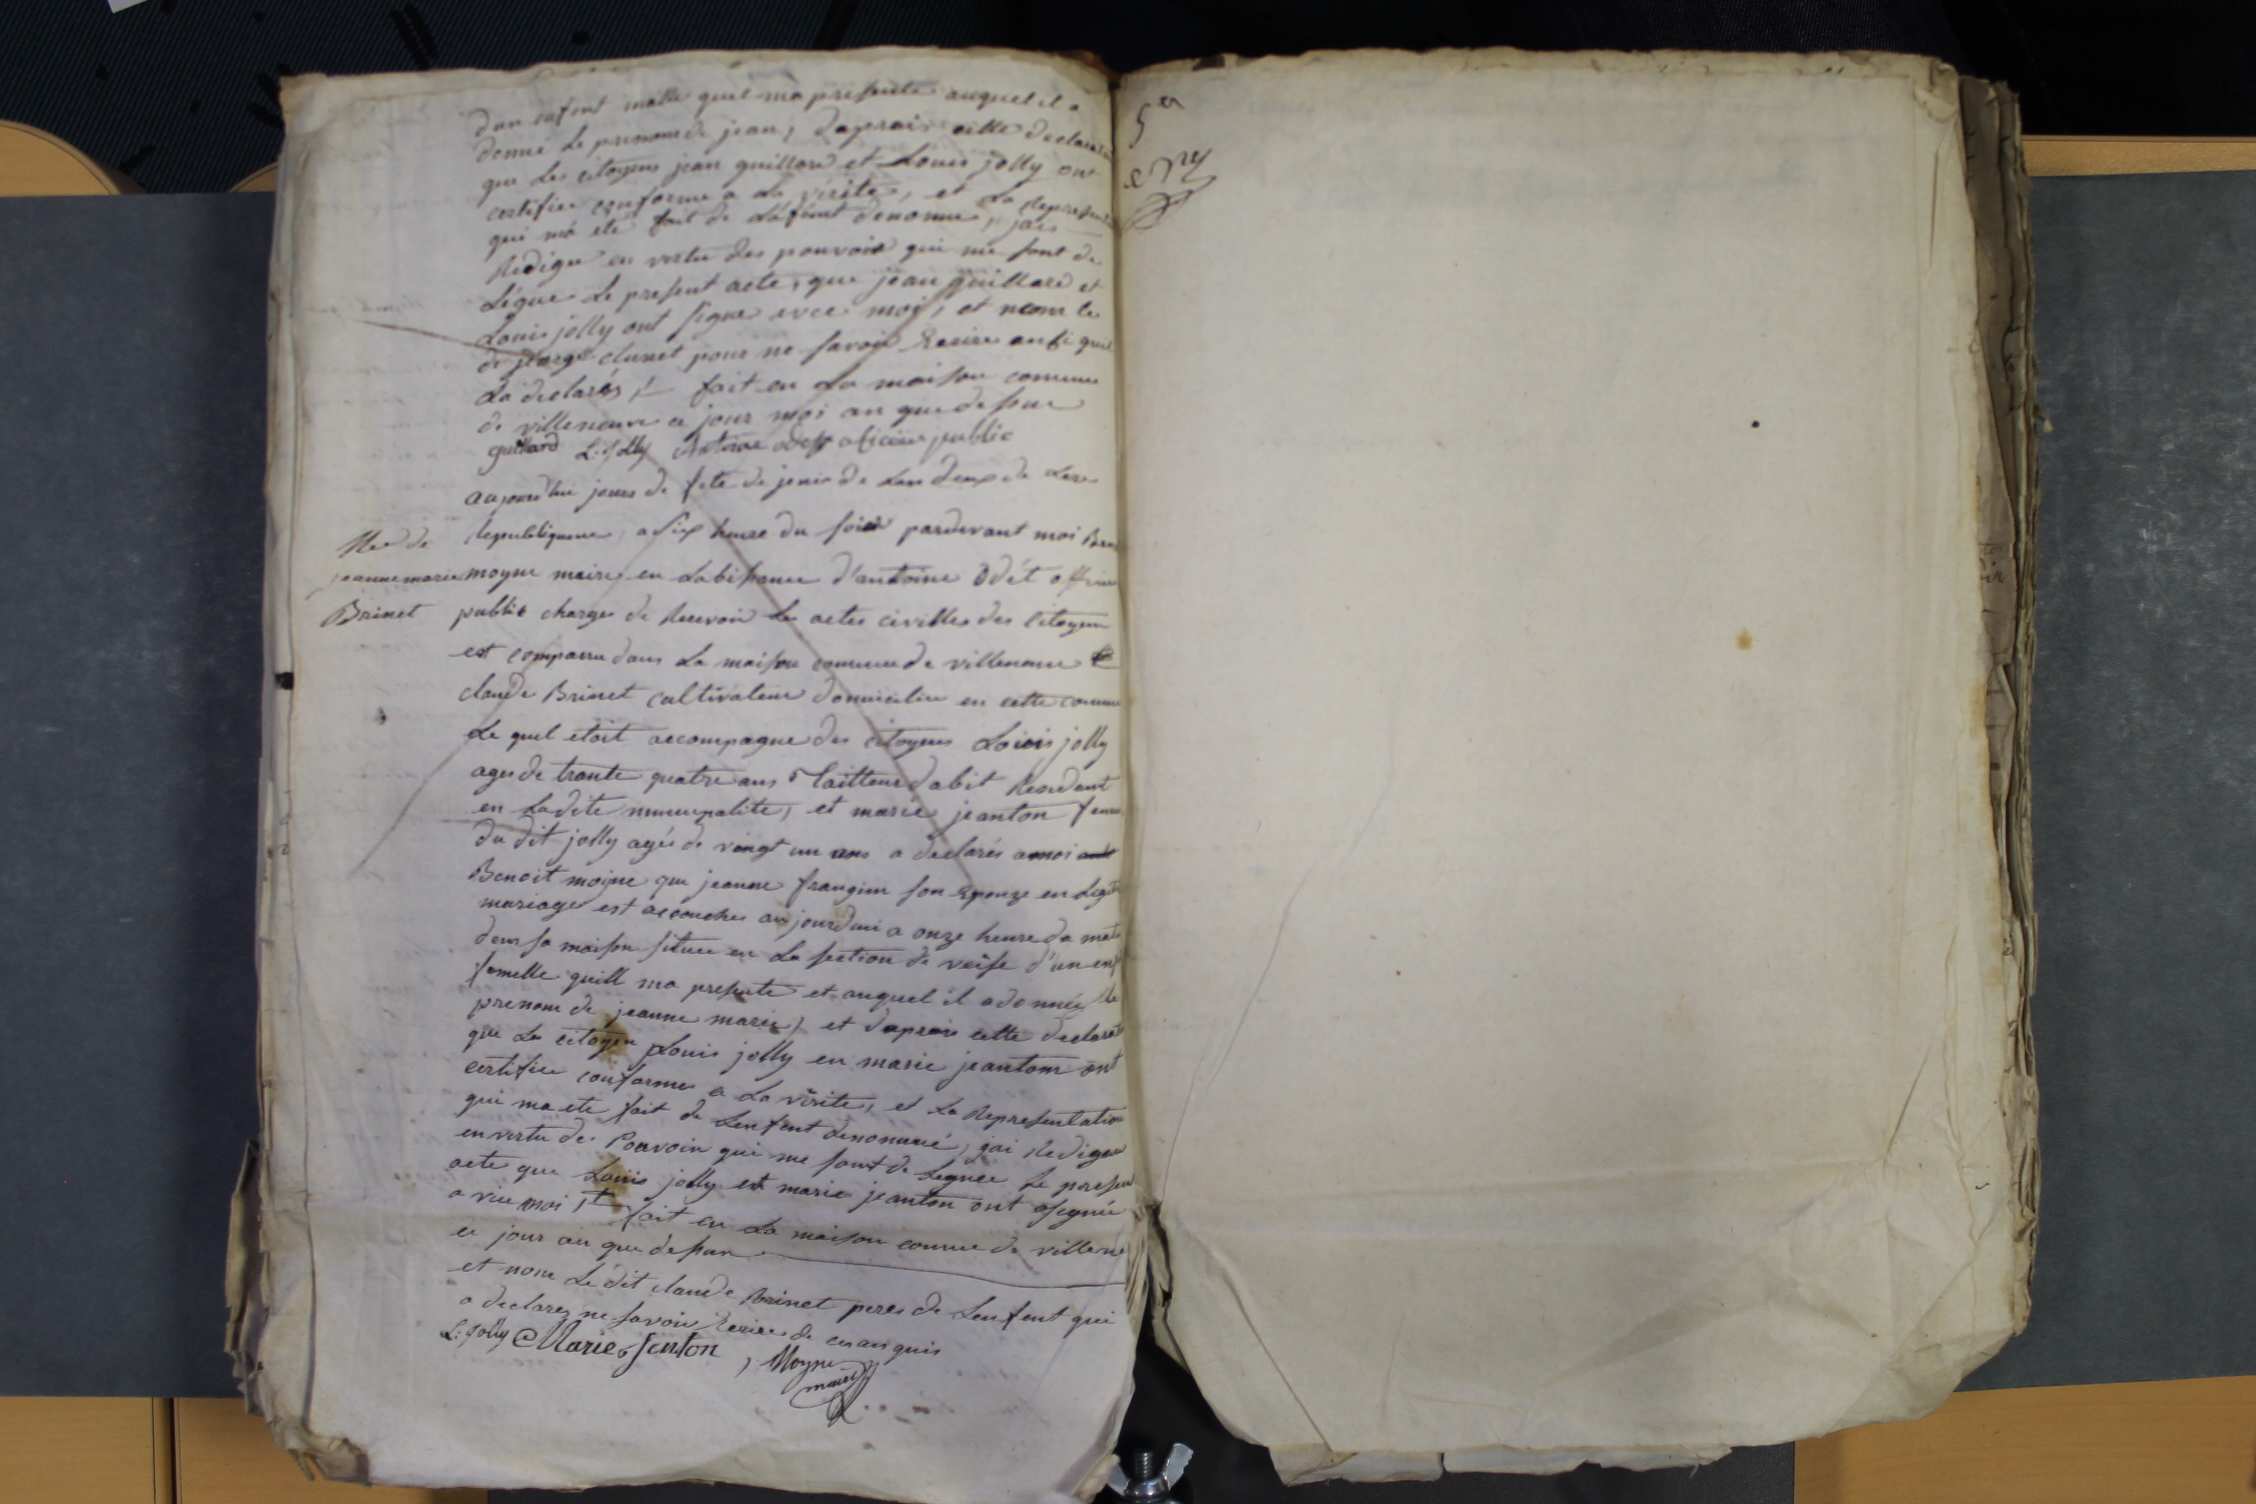 dun enfent malle quil ma presente auquel il a
donné le prenom de jean, daprais cette declaration
que les citoyens jean guillard et Louis jolly ont
certifiée conforme a la vérité, et la Represent
qui má eté fait de láfént denomme, jais
Redigee en vertu des pouvoir qui me sont de
Légue Le present acte, que jean guillard et
Louis jolly ont signe avec moi, et nom le
clunet pour ne savoir Ecrire ansi quil
La declarés, fait en La maison comune
de villeneuve ce jour moi an que desus
guillard L: Jolly Antoine odet oficiier public
aujourdhui jours de fete de la Lan deux de Lere
Republiquene, a six heure du soir pardevant moi Ben
Née de
jeanne marie
Brinet
moyne maire en Labsance d'antoine Odét officie
public charge de Recevoir Les actes civilles des citoyen
est comparru dans La maison comune de villeneuve
claude Brinet cultivateur domicilie en cette comune
Le quel etoit accompagne des citoyens Loiois jolly
ages de trante quatre ans tailleur dabit Residant
en Ladite municipalite, et marie jeanton fem
du dit jolly agée de vingt un ans a declarés amoi
Benoit moyne que jeanne frangin son Epouze en Legit
mariage est acouchee aujourdui a onze heure da mat
dans sa maison situee en La section de veise d'un enf
femelle quill ma presente et auquel il a donnée le
prenom de jeanne marie, et daprais cette declarat
que Les citoyen Louis jolly en marie jeantom ont
certifiee conforme a La vérite, et La Representation
qui ma ete fait de Lenfent denommé, jai Redigee
en vertu des Pouvoir qui me sont de Leguee Le presen
acte que Louis jolly et marie jeanton ont asignée
a vec moi, fait en La maison comune de villene
ce jour an que desus
et nom Le dit claude Brinet peres de Lenfent qui
a declarez ne savoir Ecrire de ce anquis
L: Jolly Marie Jenton, Moyne
maire